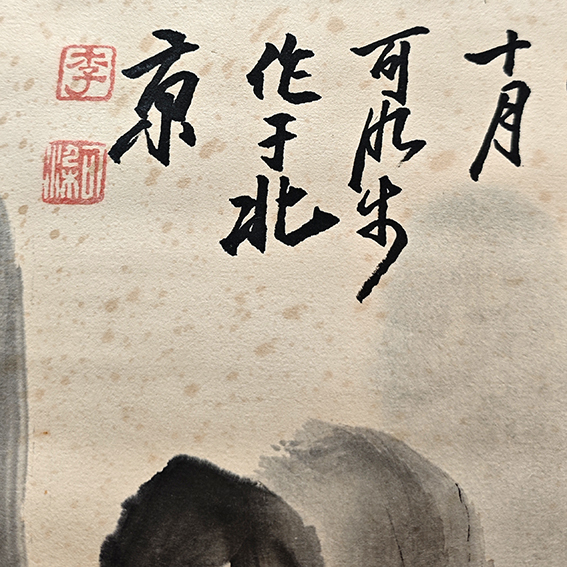 十月
可染
作于北
京
李
可染